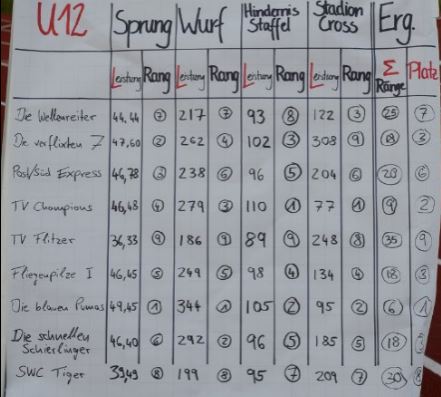 U12 Sprung Wurf Hindernis Staffel Stadion Cross Erg.
Leistung Rang Leistung Rang Leistung Rang Leistung Rang Σ Ränge Platz
Die Wellenreiter 44,44 7 217 7 93 8 122 3 25 7
Die verflixten 7 47,60 2 262 4 102 3 308 9 18 3
Post/Süd Express 46,78 3 238 6 96 5 204 6 20 6
TV Champions 46,48 4 279 3 110 1 77 1 9 2
TV Flitzer 36,33 9 186 9 89 9 248 8 35 9
Fliegenpilze I 46,45 5 249 5 98 4 134 4 18 3
Die blauen Pumas 49,45 1 344 1 105 2 95 2 6 1
Die schnellen Schierlinger 46,40 6 292 2 96 5 185 5 18
SWC Tiger 39,49 8 199 8 95 7 209 7 30 8